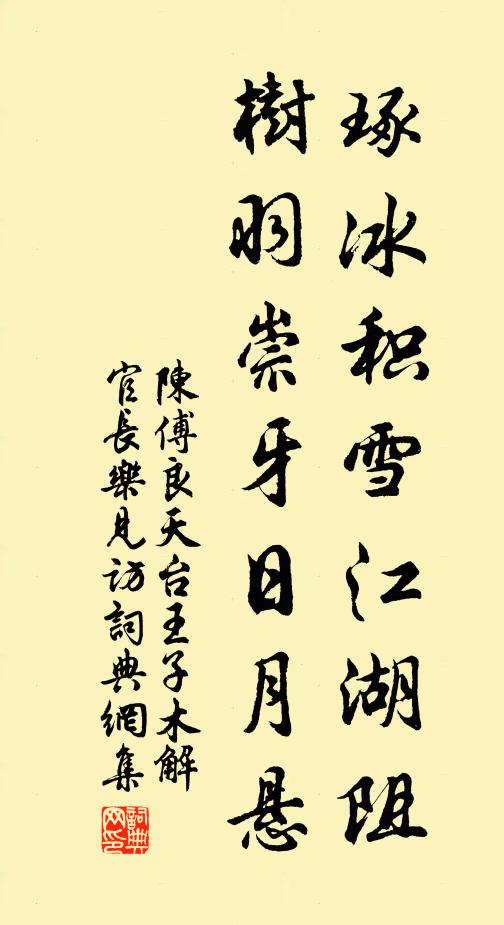 琢冰积雪江湖阻
樹羽崇牙日月悬
陳傅良天台王子木解
官長樂見訪詞典網集
詞典网印